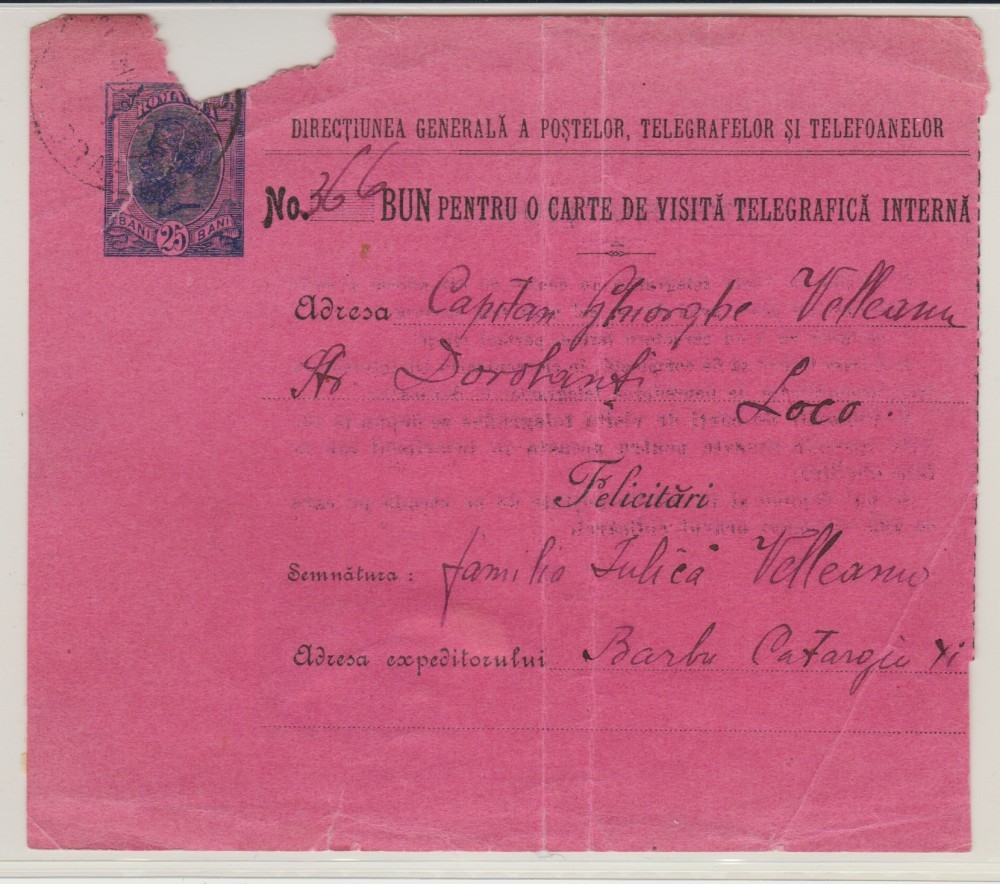 ROMANIA
BANI 25 BANI
DIRECȚIUNEA GENERALĂ A POȘTELOR, TELEGRAFELOR ȘI TELEFOANELOR
No. 366 BUN PENTRU O CARTE DE VISITĂ TELEGRAFICĂ INTERNĂ
Adresa Capitan Gheorghe Velleanu
Str Dorobanți
Loco.
Felicitări
Semnătura: familia Iulică Velleanu
Adresa expeditorului Barbu Catargiu